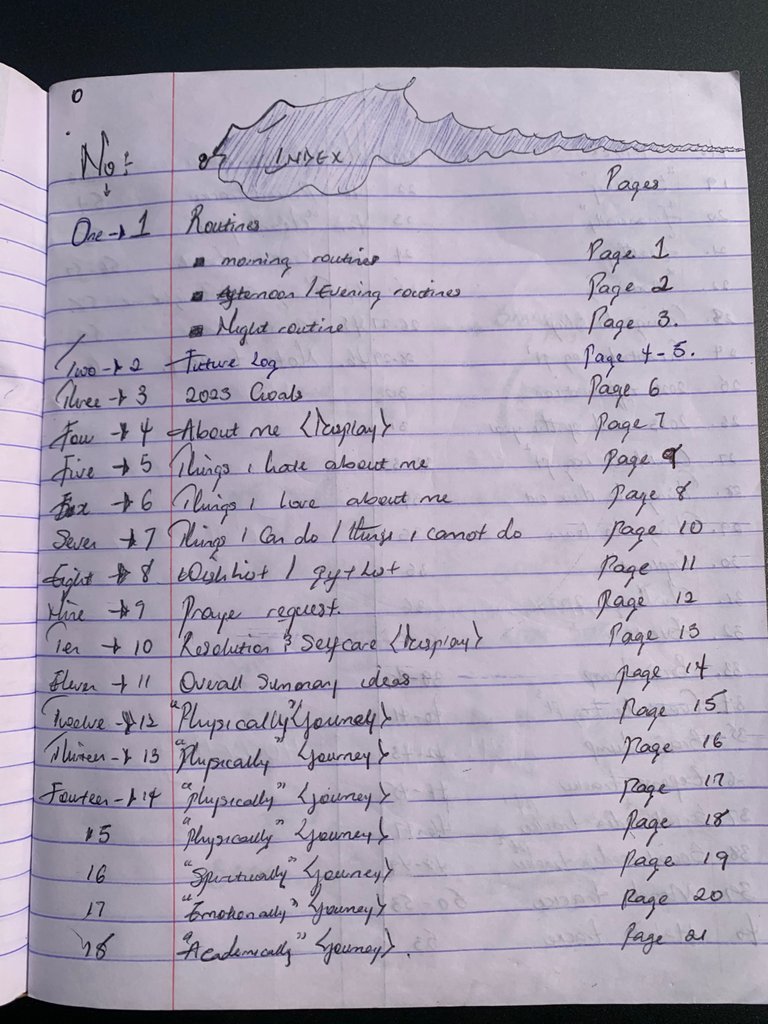 0
INDEX
No:-
Pages
One → 1 Routines
▪ morning routines Page 1
▪ Afternoon / Evening routines Page 2
▪ Night routine Page 3.
Two → 2 Future Log Page 4-5.
Three → 3 2023 Goals Page 6
Four → 4 About me <Display> Page 7
Five → 5 Things I hate about me Page 9
Six → 6 Things I love about me Page 8
Seven → 7 Things I Can do / things I cannot do Page 10
Eight → 8 Wishlist / gift list Page 11
Nine → 9 Prayer request. Page 12
Ten → 10 Resolution & Selfcare <Display> Page 13
Eleven → 11 Overall Summary ideas Page 14
Twelve → 12 "Physically" <journey> Page 15
Thirteen → 13 "Physically" <journey> Page 16
Fourteen → 14 "Physically" <journey> Page 17
15 "Physically" <journey> Page 18
16 "Spiritually" <journey> Page 19
17 "Emotionally" <journey> Page 20
18 "Academically" <journey>. Page 21